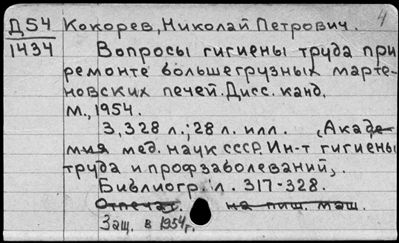 4
Д54 Кокорев, Николай Петрович.
1434 Вопросы гигиены труда при
ремонте большегрузных марте-
новских печей. Дисс. канд.
М., 1954.
3,328 л.; 28 л. илл. (Акаде-
мия мед. наук СССР. Ин-т гигиены
труда и профзаболеваний).
Библиогр. л. 317-328.
Отпечат. на пиш. маш.
Защ. в 1954г.